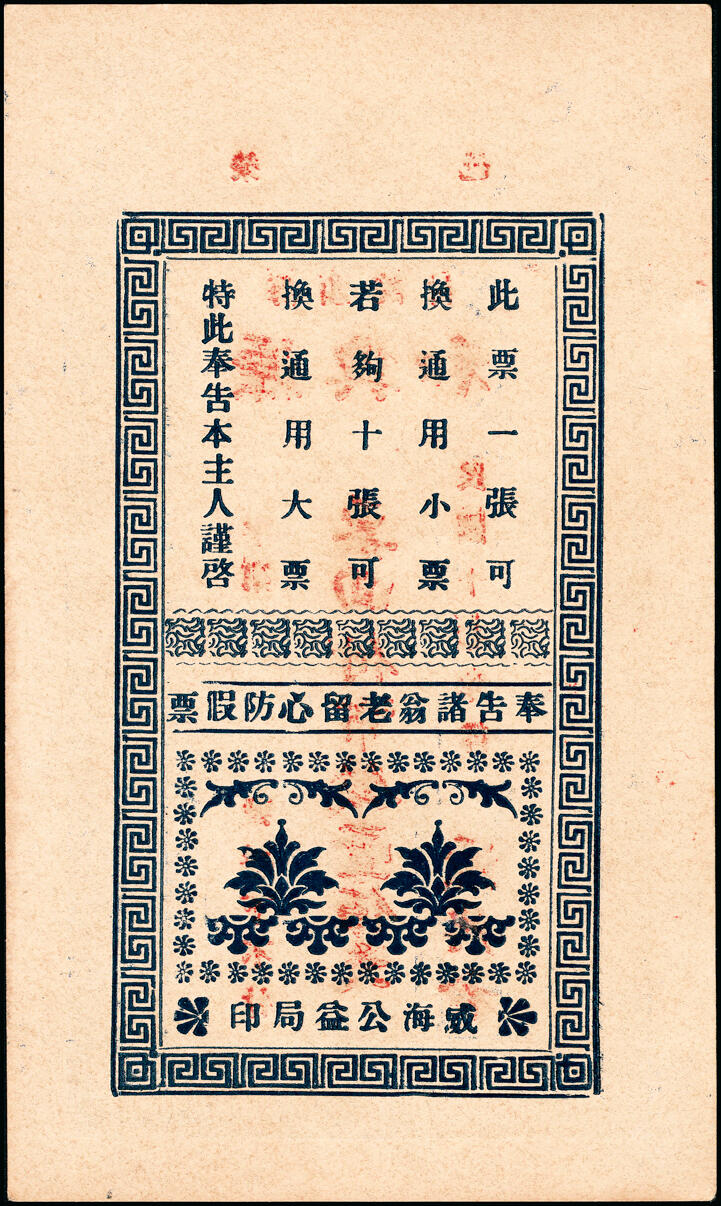 此票一張可
換通用小票
若夠十張可
換通用大票
特此奉告本主人謹啓
奉告諸翁老留心防假票
威海公益局印